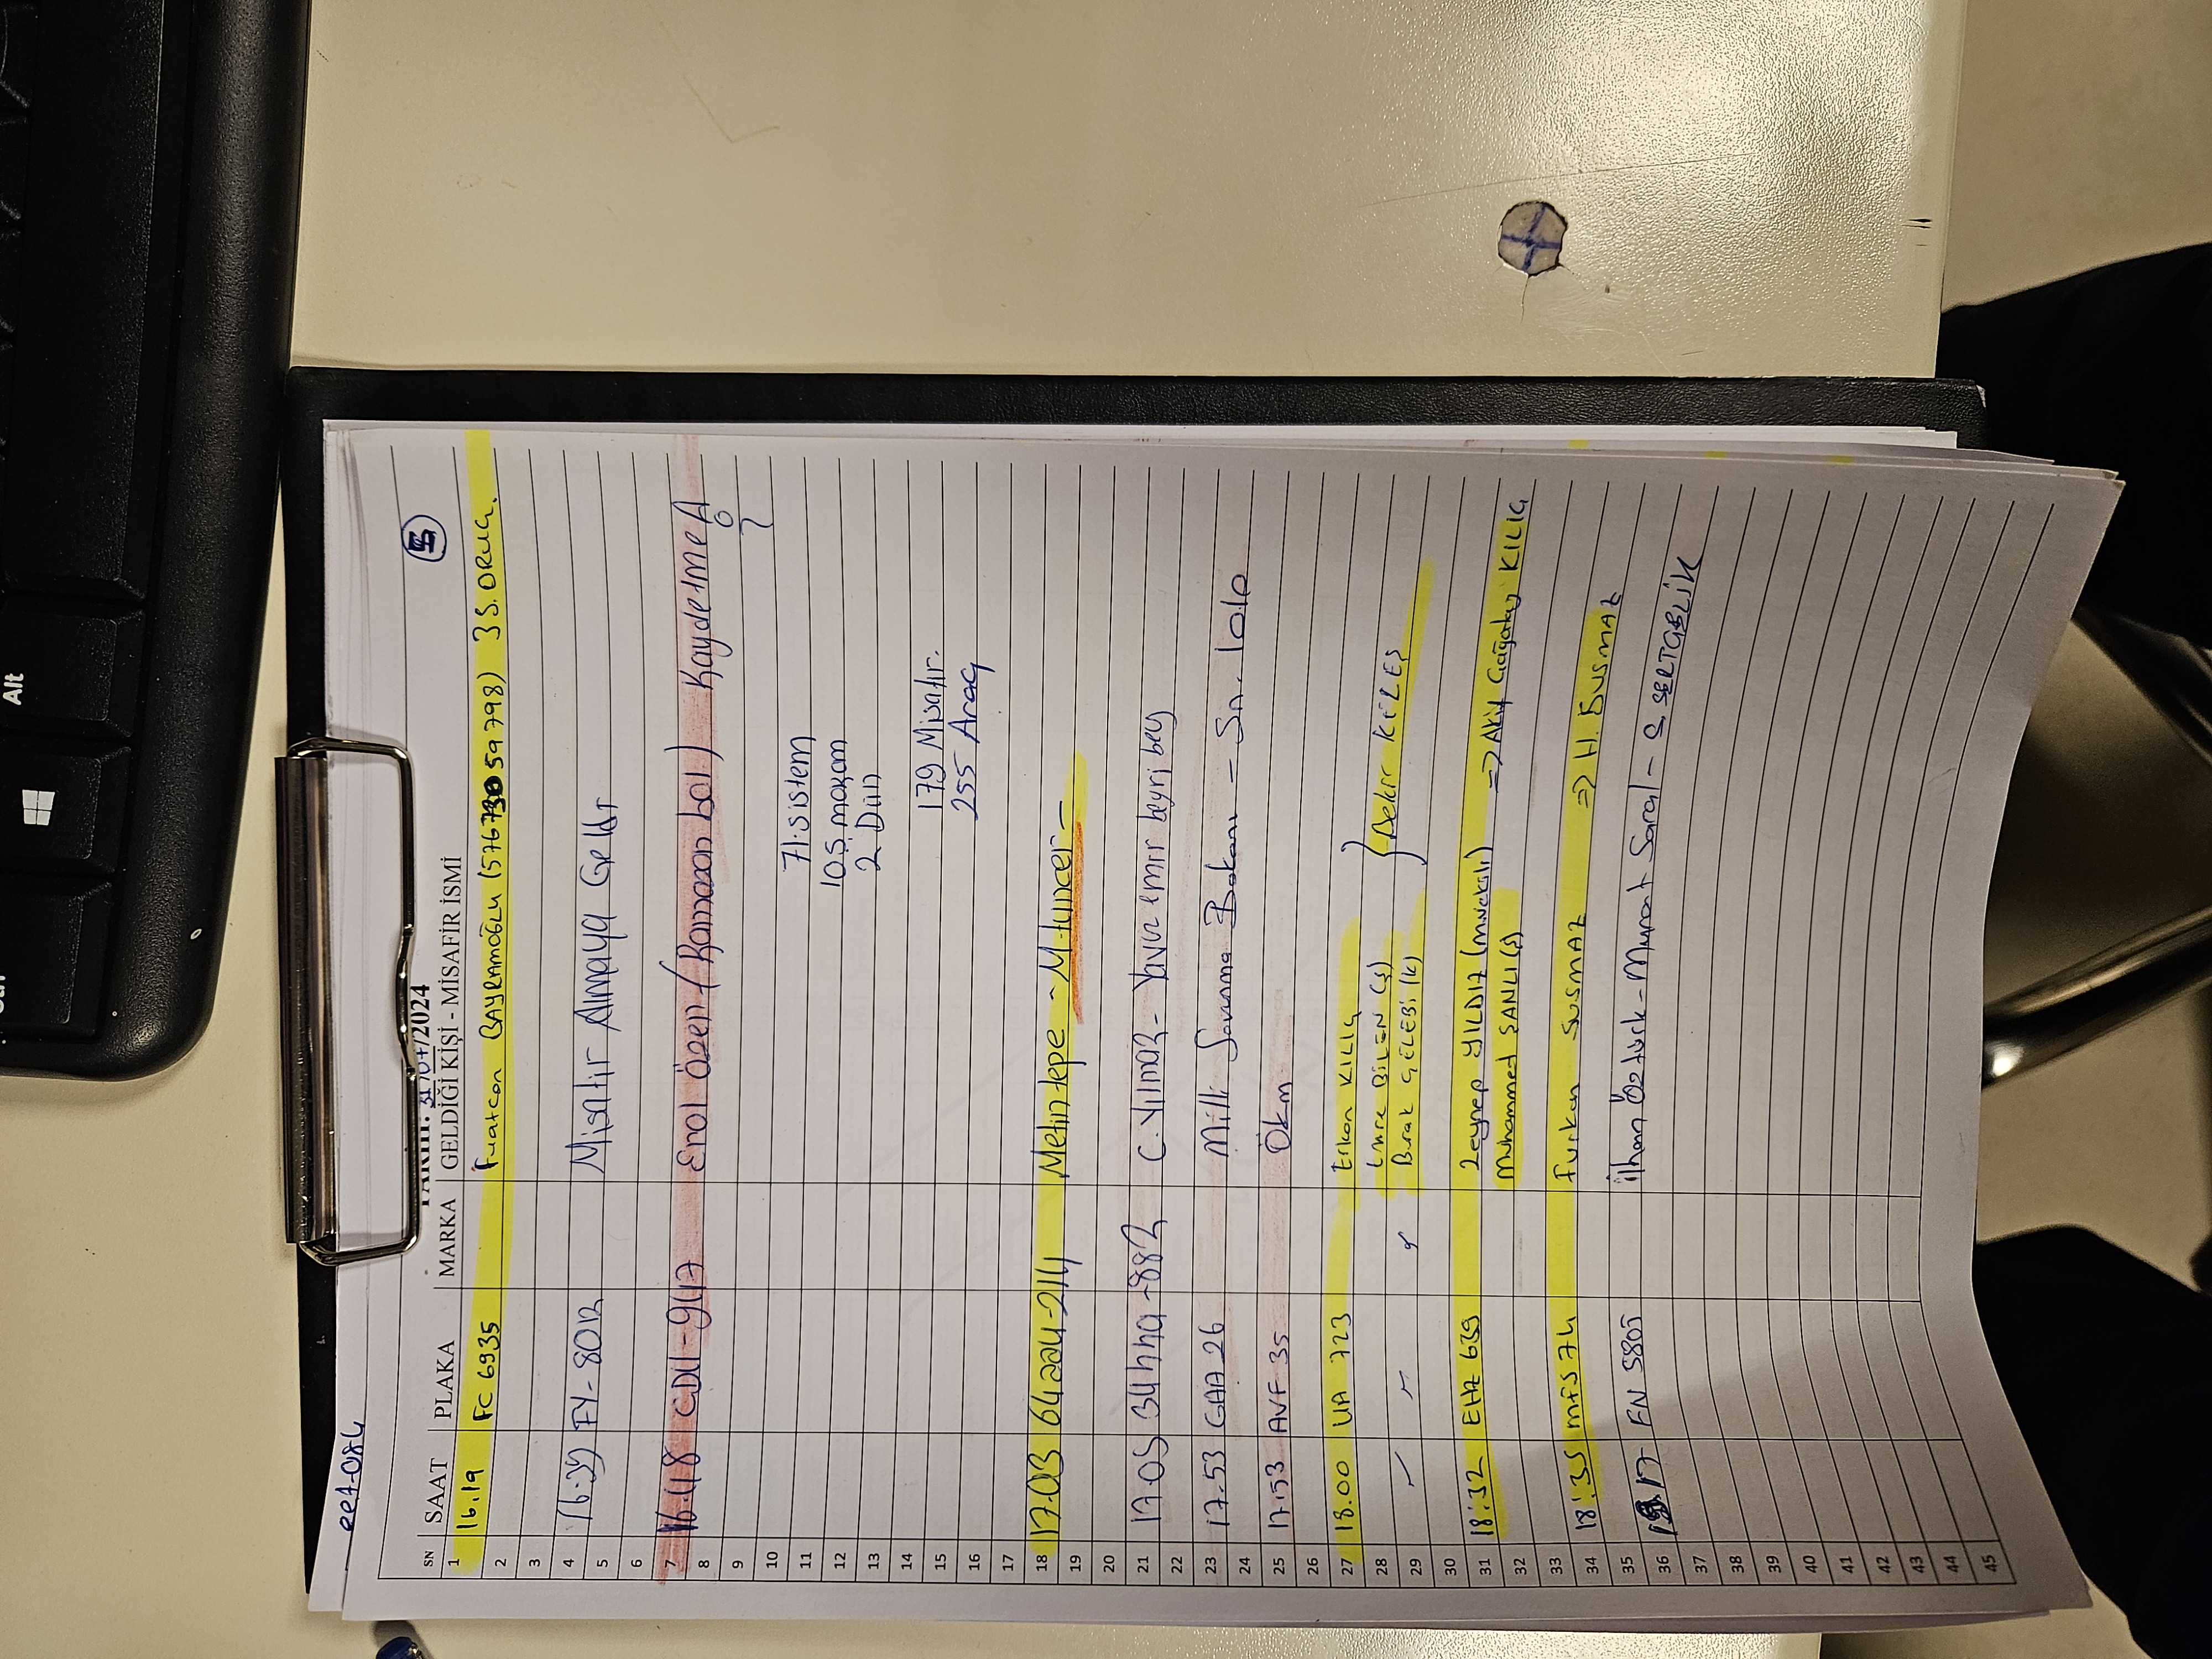 Alt
eet-084
31/07/2024
5
SN SAAT PLAKA MARKA GELDİĞİ KİŞİ - MİSAFİR İSMİ
1 16.19 FC 6935 Fuatcan BAYRAMOĞLU (57673059798) 3 S. ORUÇ.
2
3
4 16.39 FY-8012 Misafir Almaya Geldi
5
6
7 16.48 CDU-947 Erol Özen (Ramazan bal) Kaydetme A
8
9
10
11 71.sistem
12 105 makam
13 2 Dün
14
15 179 Misafir.
16 255 Araç
17
18 17.03 64aau-214 Metin tepe - M.tuncer -
19
20
21 17.05 34hha-882 C. Yılmaz - Yavuz emir beyri bey
22
23 17.53 GAA 26 Milli Savunma Bakanı - Sn.
24
25 17.53 AVF 35 Ökm
26
27 18.00 UA 723 Erkan KILIÇ
28 Emre BİLEN (ş) } Bekir KELEŞ
29 Burak ÇELEBİ (k)
30
31 18:32 EHZ 639 Zeynep YILDIZ (m.vekili) => Akif Çağatay KILIÇ
32 Muhammed ŞANLI (ş)
33
34 18:35 MFS 74 Furkan SUSMAZ => H. SUSMAZ
35
36 17 FN 5805 İlhan Öztürk - Murat Saral - S. SERTÇELİK
37
38
39
40
41
42
43
44
45